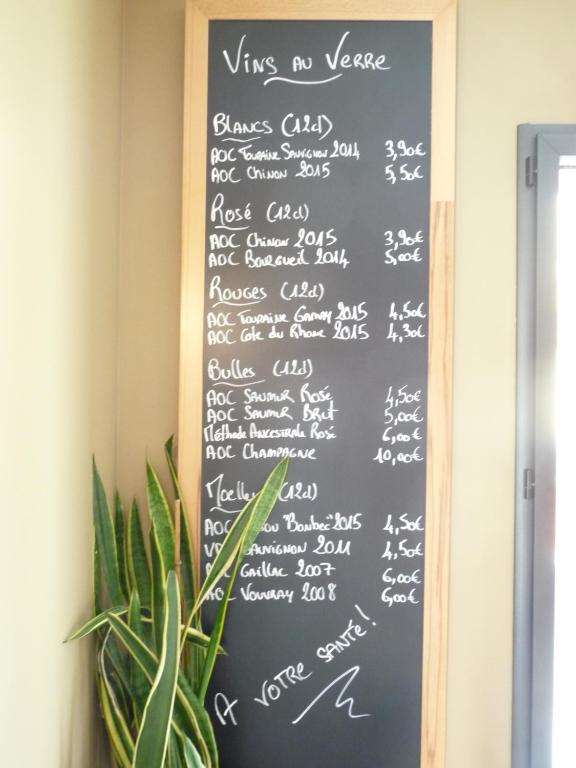 Vins au Verre
Blancs (12cl)
AOC Touraine Sauvignon 2014 3,90€
AOC Chinon 2015 5,50€
Rosé (12cl)
AOC Chinon 2015 3,90€
AOC Bourgueil 2014 5,00€
Rouges (12cl)
AOC Touraine Gamay 2015 4,50€
AOC Cote du Rhone 2015 4,30€
Bulles (12cl)
AOC Saumur Rosé 4,50€
AOC Saumur Brut 5,00€
Méthode Ancestrale Rosé 6,00€
AOC Champagne 10,00€
(12cl)
"Bonbec" 2015 4,50€
Sauvignon 2011 4,50€
Gaillac 2007 6,00€
AOC Vouvray 2008 6,00€
A votre santé!